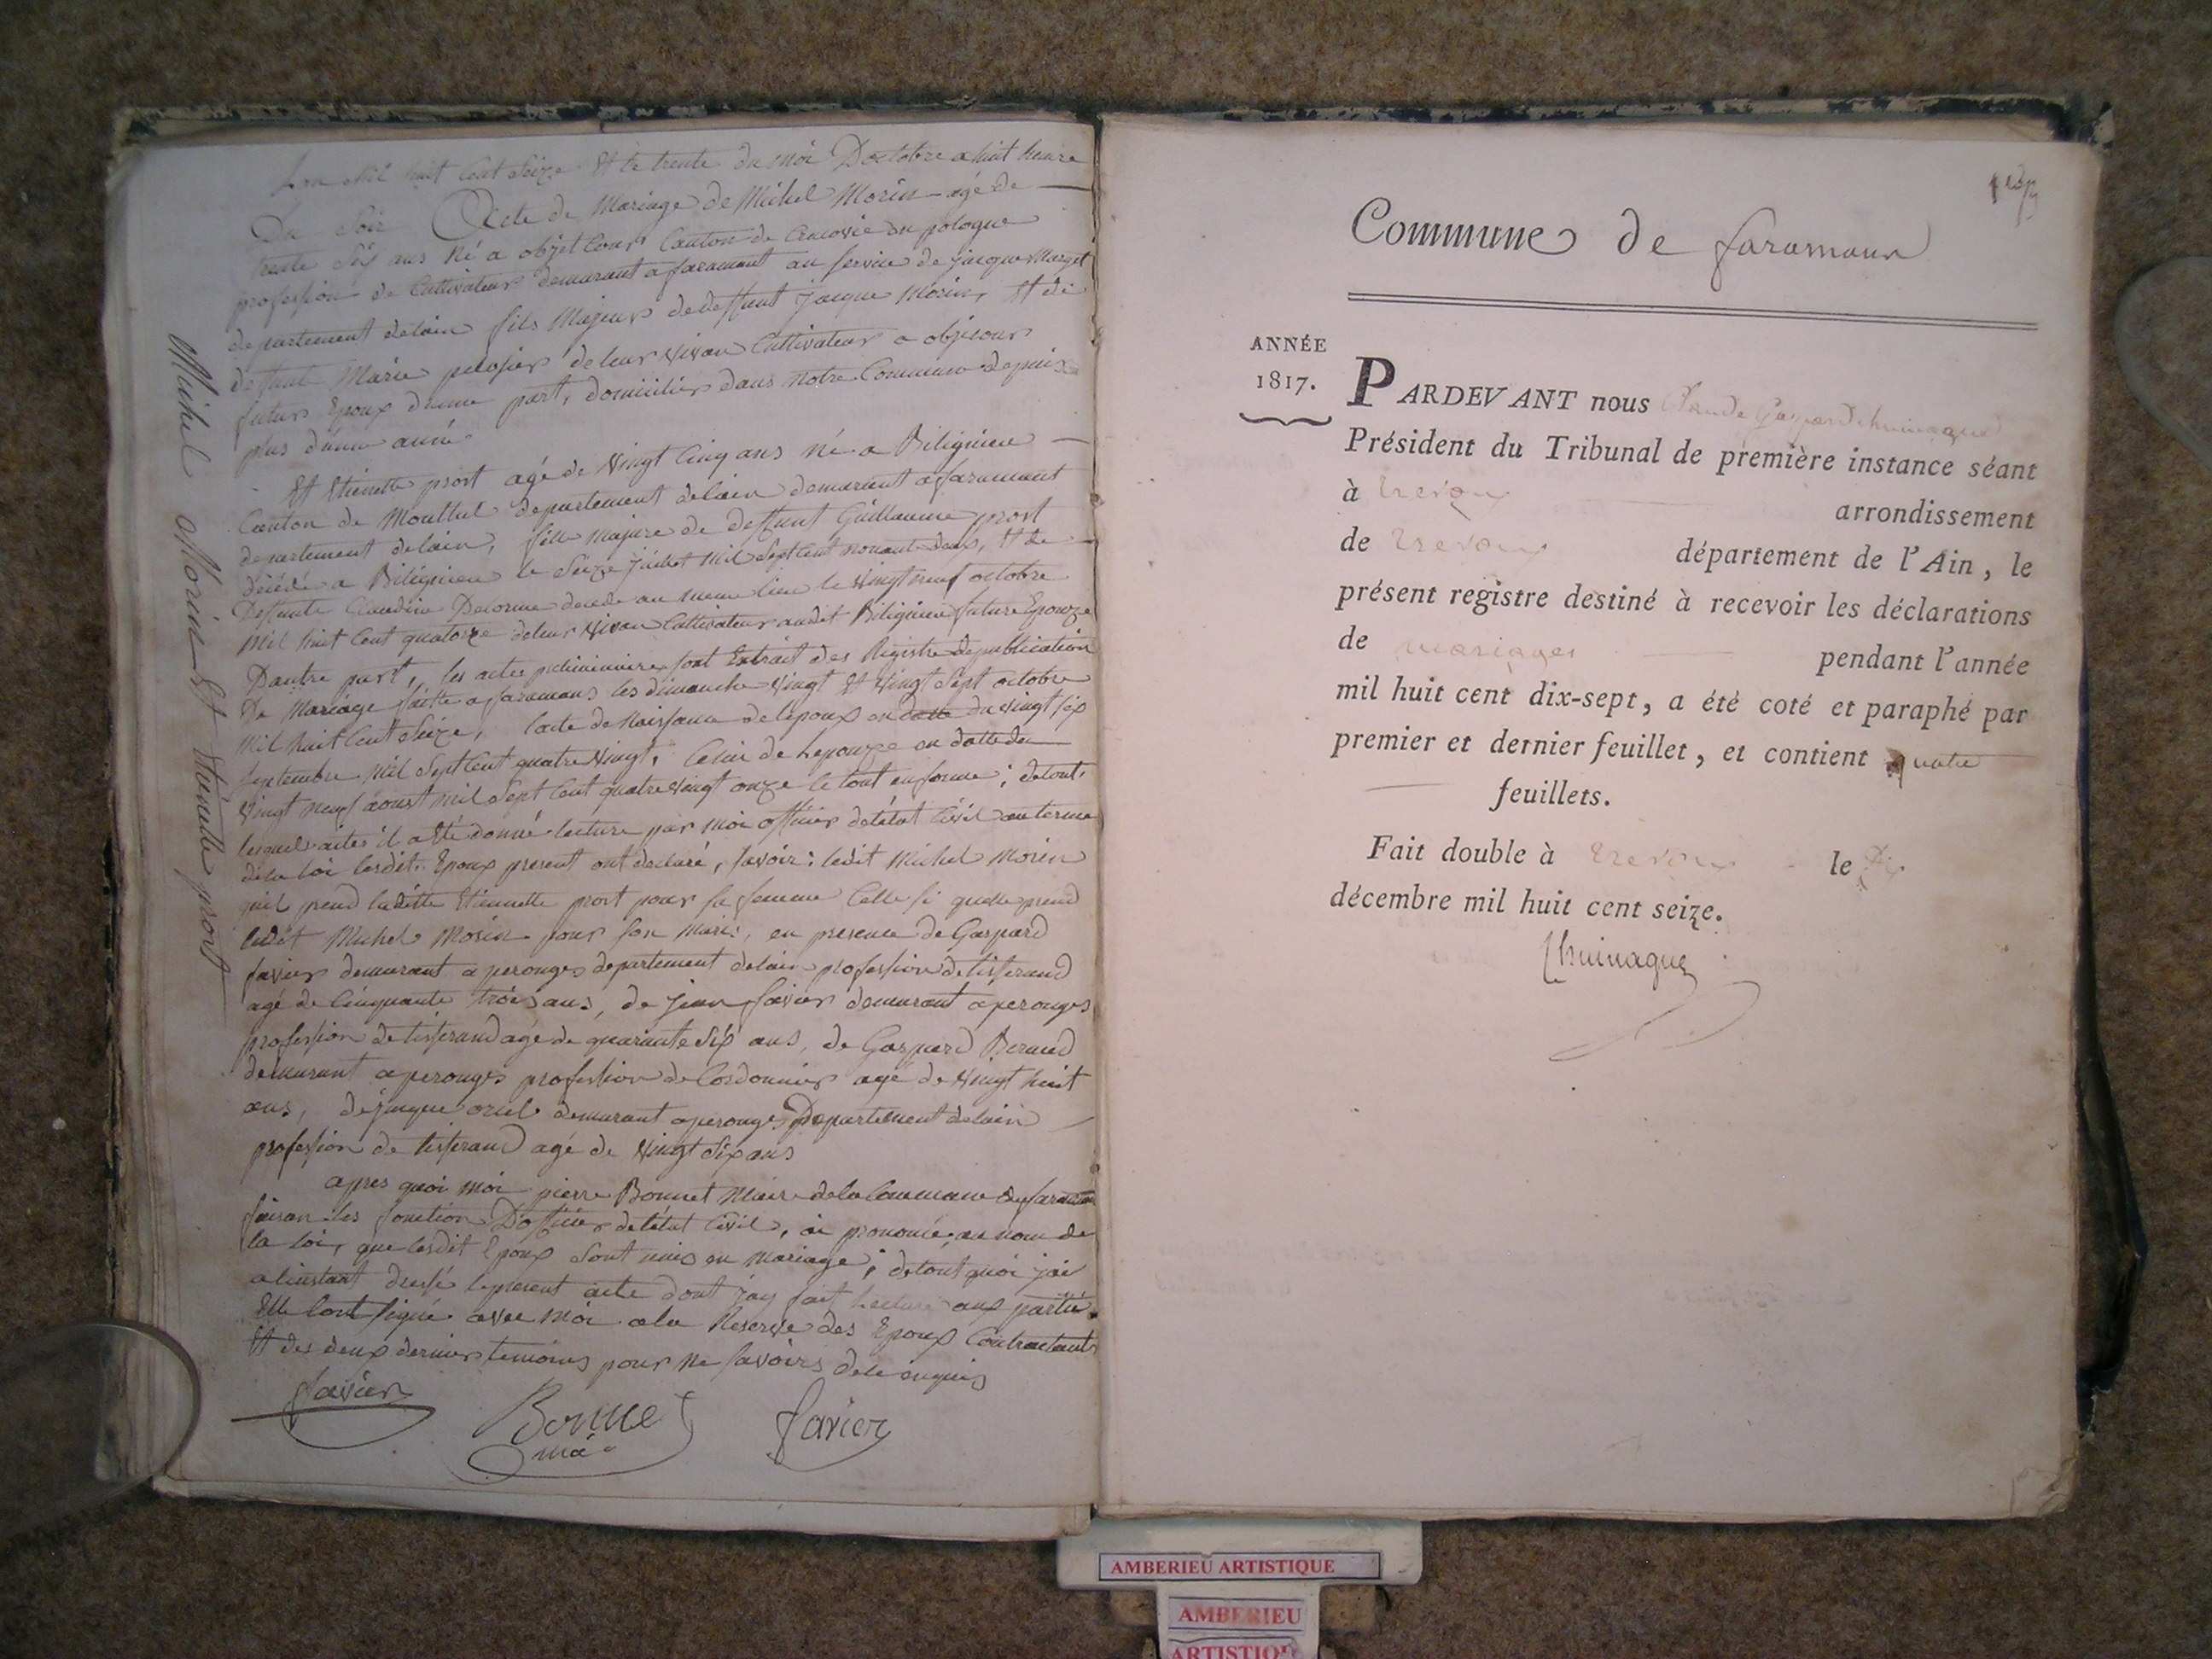 Lan Mil huit Cent Seize Et le trente du moi Doctobre a huit heure
Du Soir Acte de Mariage de Michel Morin agé de
trente Six ans né a objet Cour Canton de Cracovie en pologne
profession de Cultivateur demeurant a faramant au service de jacque Marget
departement delain fils Majeur de deffunt Jacque Morin, Et de
deffunte Marie de leur vivan Cultivateur a objecour
futur Epoux dune part, domicilier dans notre Commune depuis
plus dune anné
Et Etienette prost agé de vingt Cinq ans né a Biligneu
Canton de Montluel departement delain demeurant a faramant
departement delain, fille majure de deffunt Guillaume prost
décédé a Biligneu le Seize juillet mil Sept Cent nonante deux, Et de
Deffunte Claudine Delorme décédé au meme lieu le vingt neuf octobre
mil huit Cent quatorze deleur vivan Cultivateur audit Biligneu future Epouze
Dautre part, les actes preliminaire sont Extrait des Registre de publication
De Mariage faitte a faramans les dimanche vingt Et vingt Sept octobre
mil huit Cent Seize, lacte de Naissance de lepoux en datte du vingt six
septembre mil Sept Cent quatre vingt, Celui de Lepouze en datte du
vingt neuf aoust mil Sept Cent quatre vingt onze le tout en forme; detout
lesquel actes il a Eté donné lecture par moi officier detétat Civil au terme
dela loi lesdit Epoux present ont declaré, savoir: ledit Michel Morin
quil prend laditte Etiennette prost pour sa femme Celle si quelle prend
ledit Michel Morin pour son mari, en presence de Gaspard
favier demeurant a perouges departement delain profession de tisserand
agé de Cinquante trois ans, de jean favier demeurant a perouges
profession de tisserand agé de quarante Six ans, de Gaspard Berued
demeurant a perouges profession de Cordonnier agé de vingt huit
ans, de jacque oriel demeurant a perouges Departement delain
profession de tisserand agé de vingt Six ans
apres quoi moi pierre Bonnet Maire dela Commune de faramans
faisan les fonction Dofficier detétat Civil, ai prononcé au nom de
la loi, que lesdit Epoux Sont unis en mariage; detout quoi jai
a linstant dressé lepresent acte dont jay fait lecture aux partie
Elle lont signé avec moi ala Reserve des Epoux Contractant
Et des deux dernier temoins pour ne savoirs dele enquis
favier Bonnet favier
Michel Morin Et Etienette prost
Commune de faramans
ANNÉE
1817.
PARDEVANT nous Claude Gaspard
Président du Tribunal de première instance séant
à Trevoux arrondissement
de Trevoux département de l'Ain, le
présent registre destiné à recevoir les déclarations
de mariages pendant l'année
mil huit cent dix-sept, a été coté et paraphé par
premier et dernier feuillet, et contient quatre
feuillets.
Fait double à Trevoux le Dix
décembre mil huit cent seize.
AMBERIEU ARTISTIQUE
AMBERIEU
ARTISTIQUE